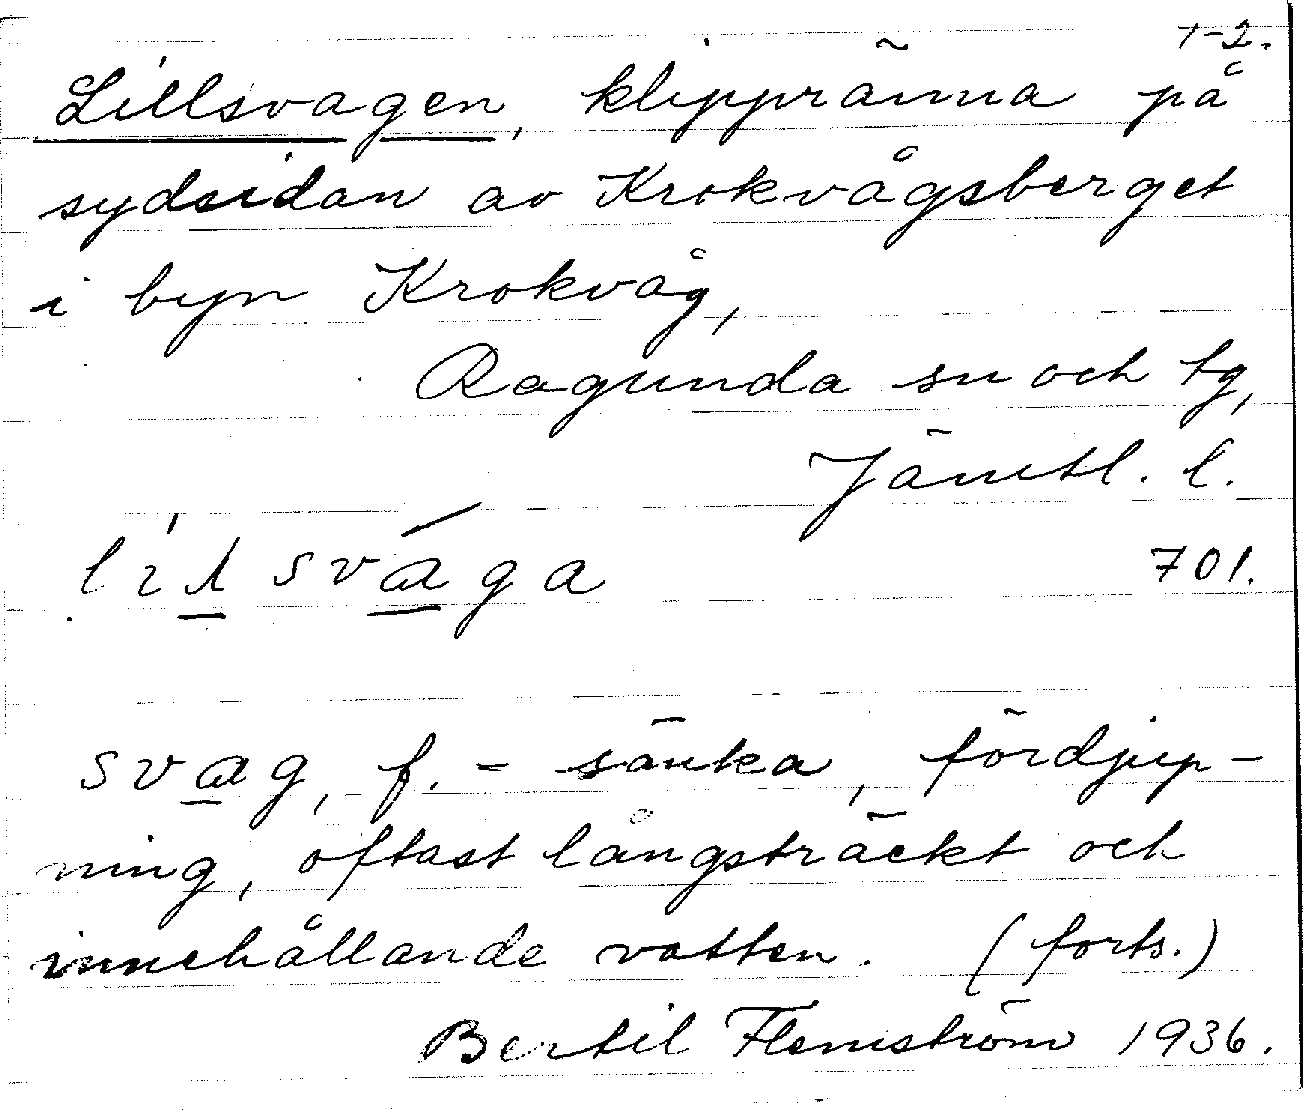 1-2.
Lillsvagen, klippränna på
sydsidan av Krokvågsberget
i byn Krokvåg,
Ragunda sn och tg,
Jämtl. l.
701.
svag, f. = sänka, fördjup-
ning, oftast långsträckt och
innehållande vatten. (forts.)
Bertil Flemström 1936.